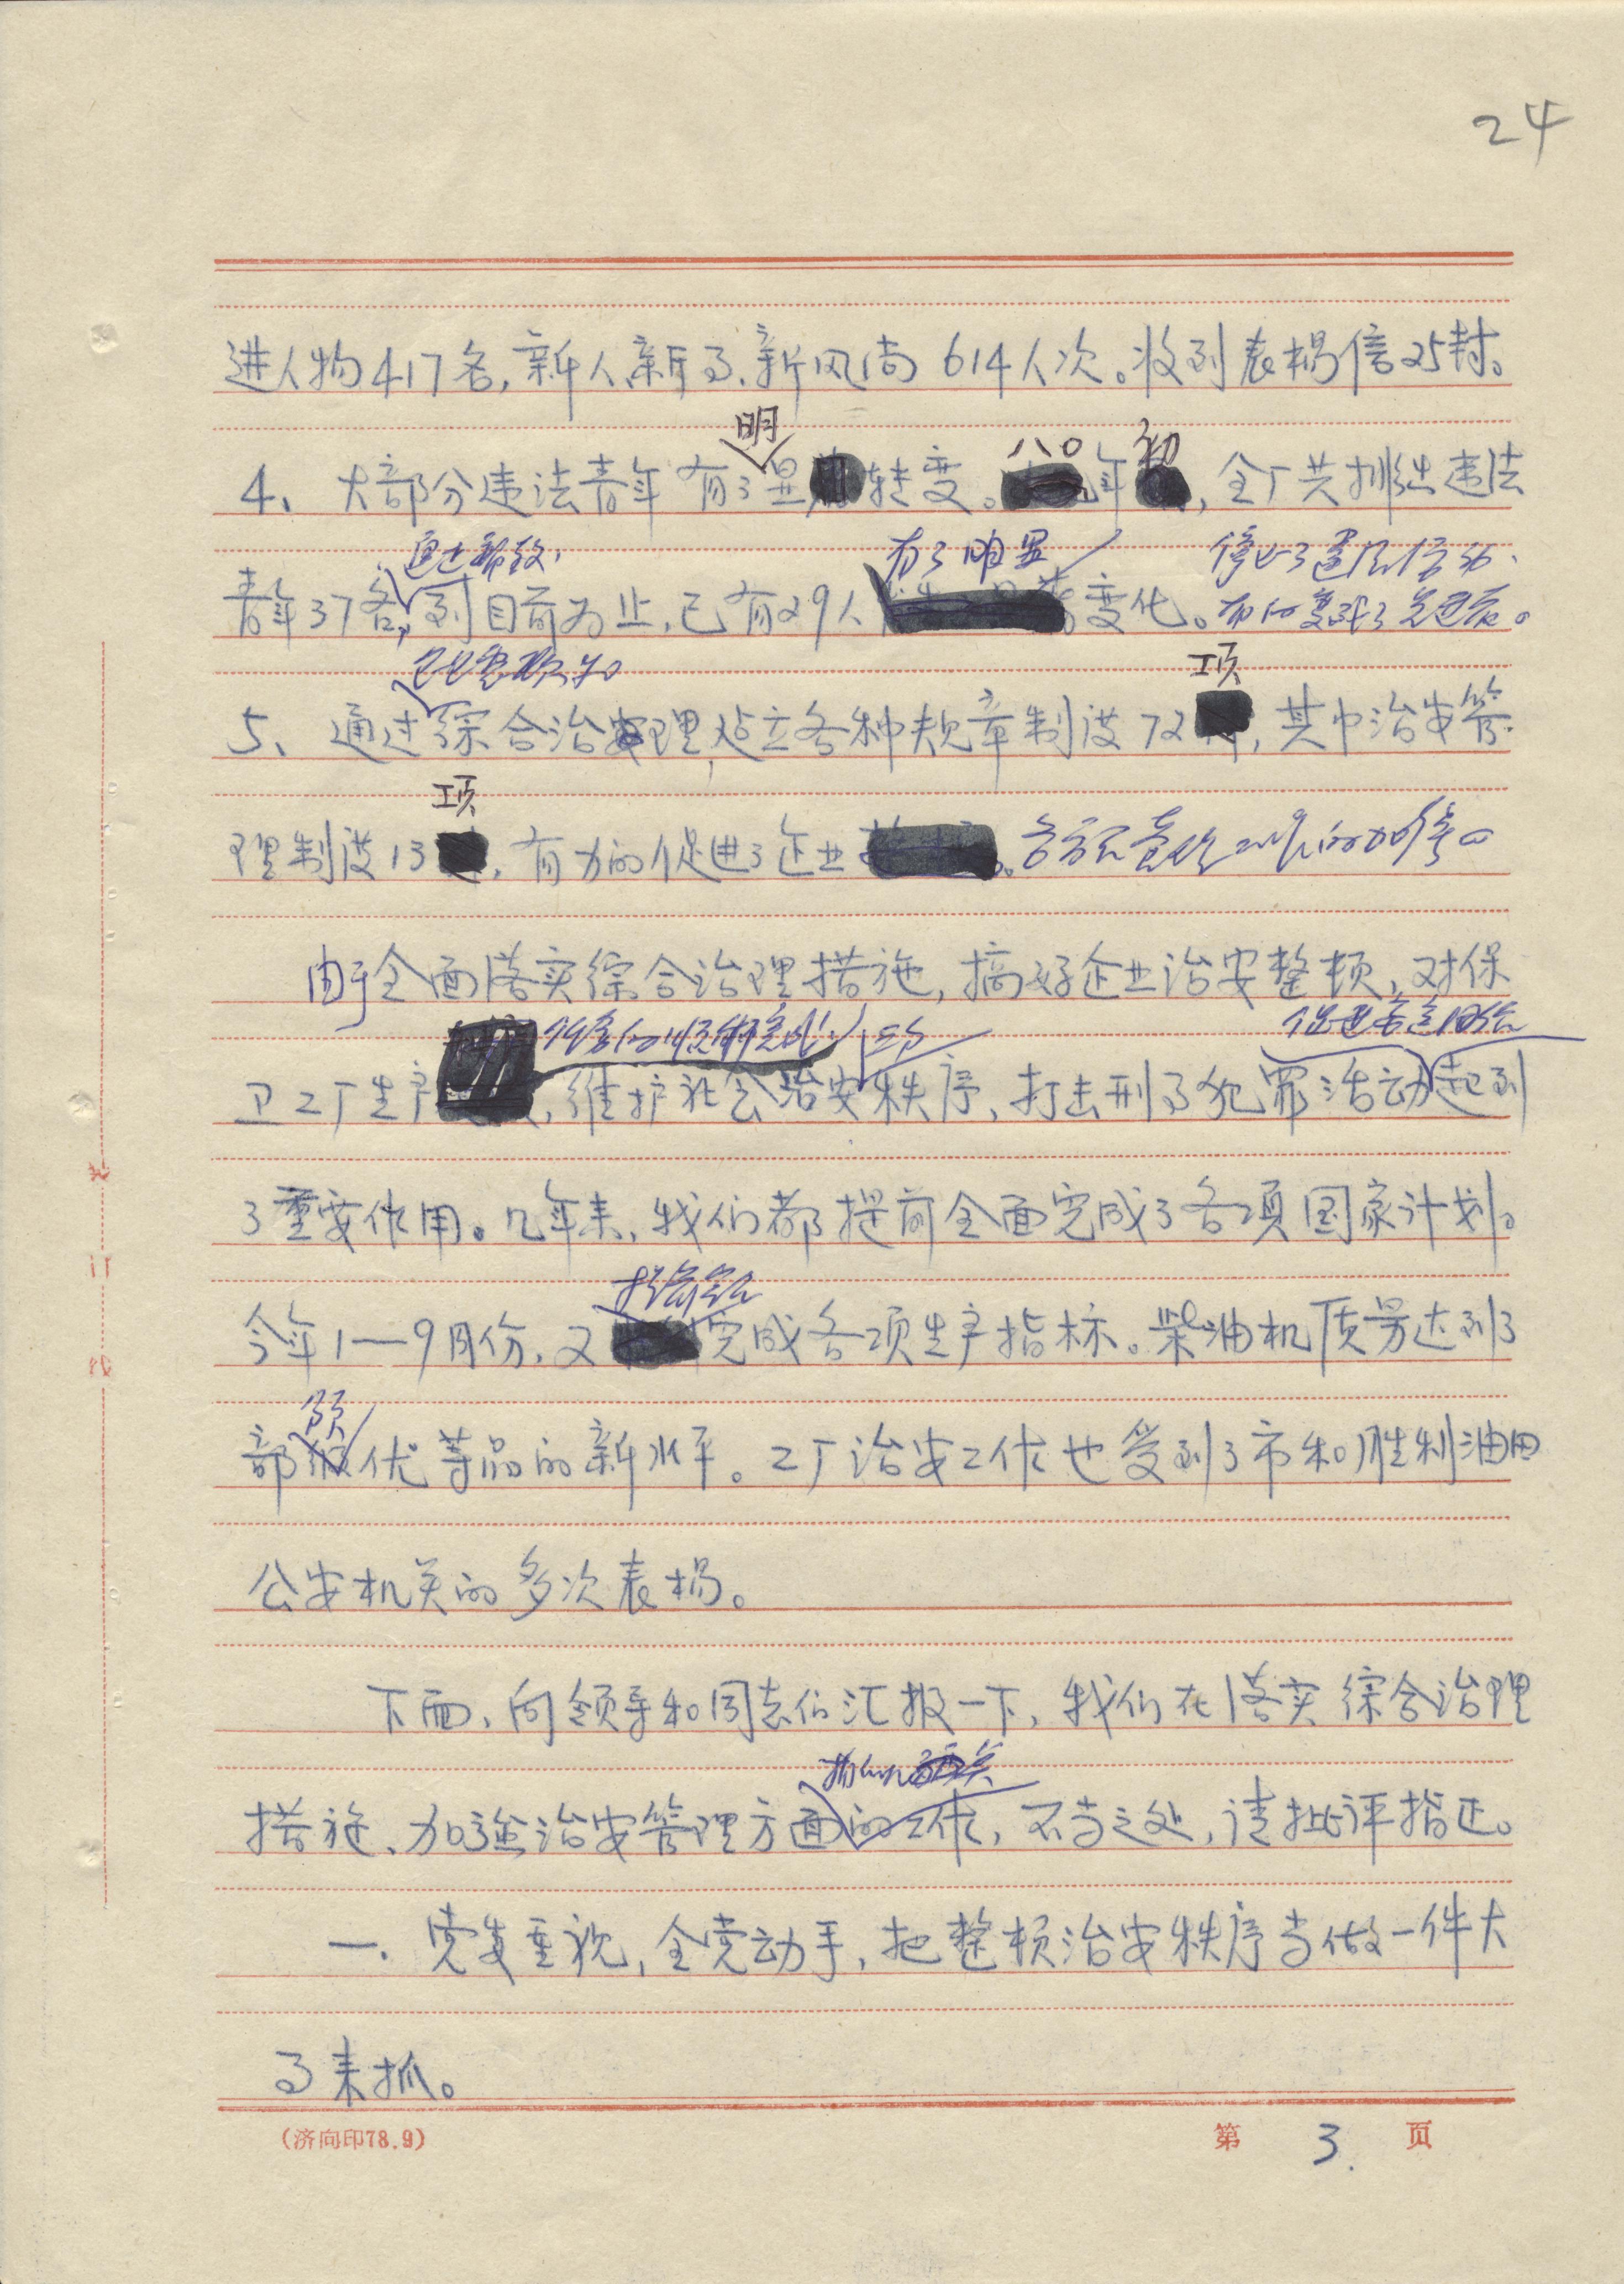 24
进人物417名,新人、新事、新风尚614人次。收到表扬信25封。
明 八〇 初
4、大部分违法青年有了显转变。年,全厂共排出违法
通过帮教, 有了明显 停止了违法活动、
青年37名,到目前为止,已有29人变化。有的变成了先进者。
项
5、通过综合治理,建立各种规章制度72,其中治安管
项
理制度13,有力的促进了企业。各方面管理工作的加强。
由于全面落实综合治理措施,搞好企业治安整顿,对保
卫工厂生产,维护社会治安秩序,打击刑事犯罪活动起到
了重要作用。几年来,我们都提前全面完成了各项国家计划。
提前全面
今年1—9月份,又完成各项生产指标。柴油机质量达到了
部优等品的新水平。工厂治安工作也受到了市和胜利油田
公安机关的多次表扬。
下面,向领导和同志们汇报一下,我们在落实综合治理
措施、加强治安管理方面的工作,不当之处,请批评指正。
一、党委重视,全党动手,把整顿治安秩序当做一件大
事来抓。
(济向印78.9)
第 3 页
装
订
线